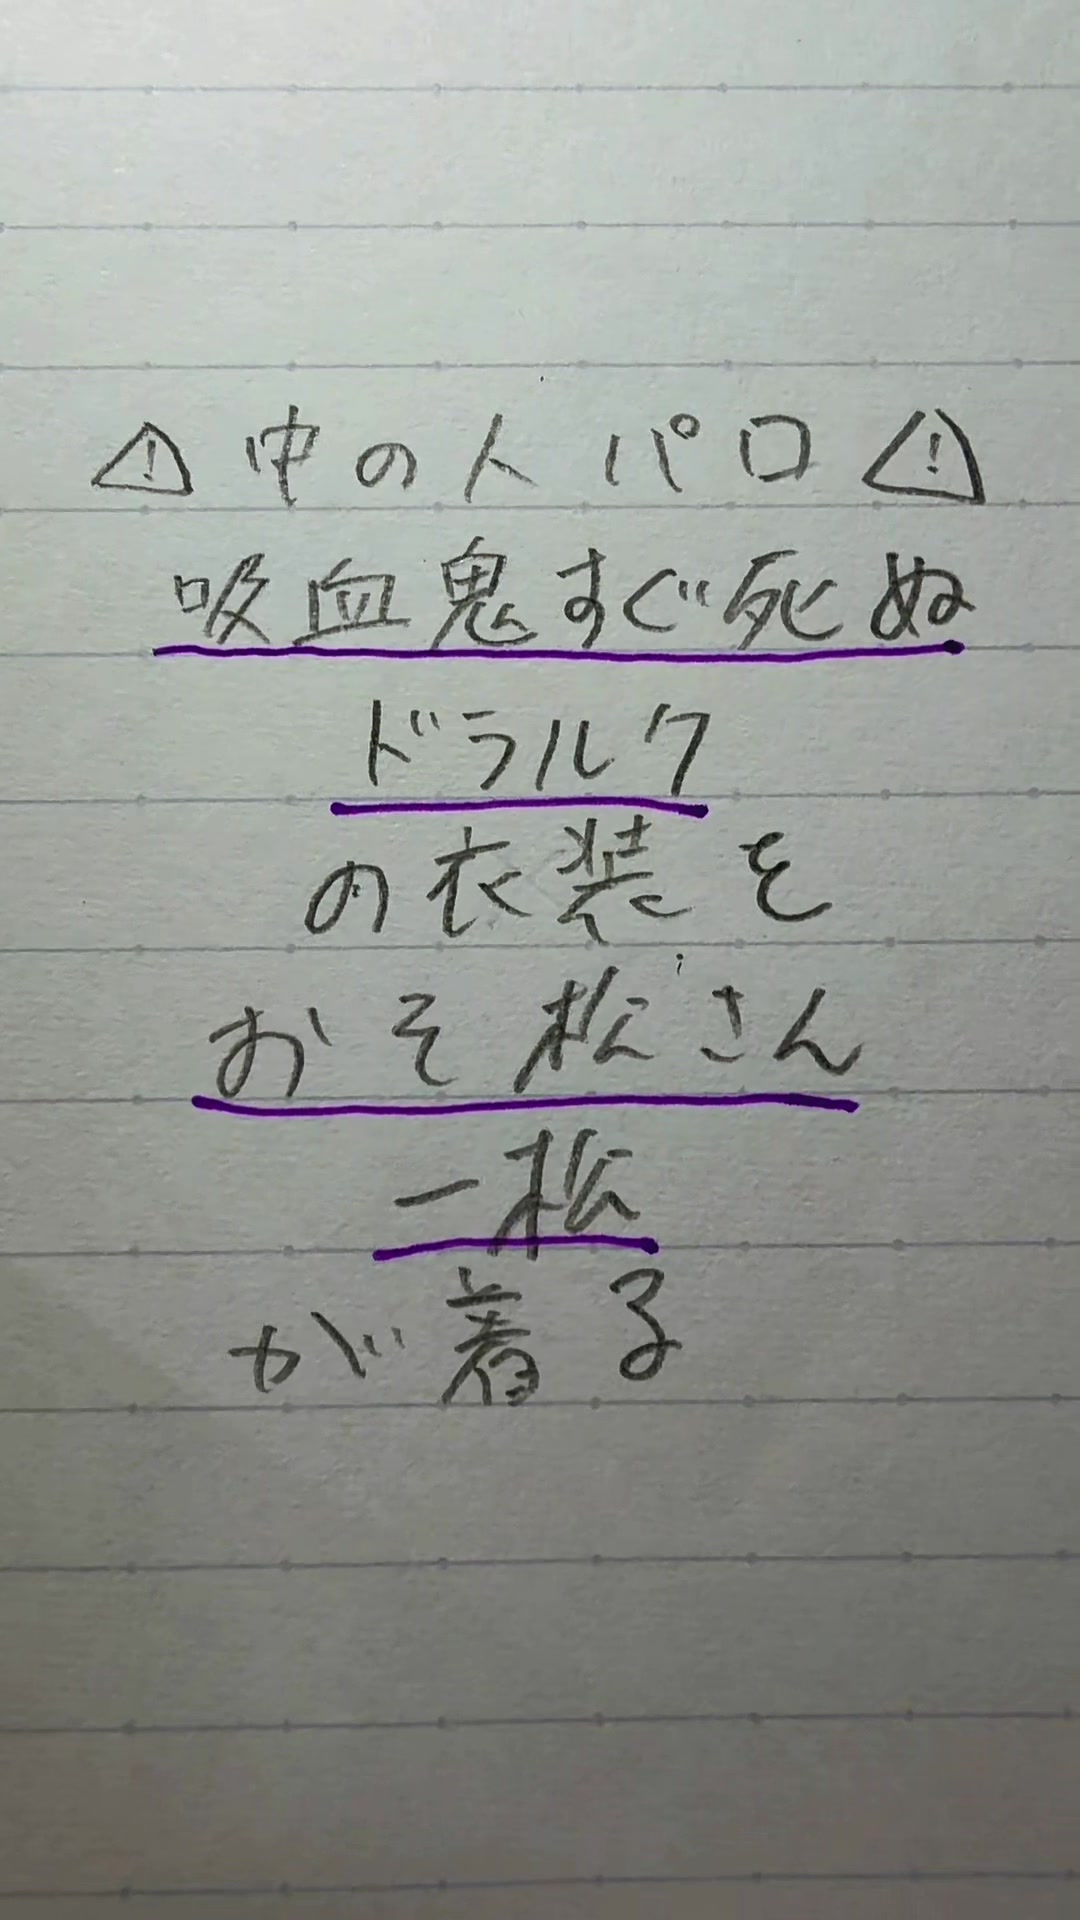 ⚠中の人パロ⚠
吸血鬼すぐ死ぬ
ドラルク
の衣装を
おそ松さん
一松
が着る